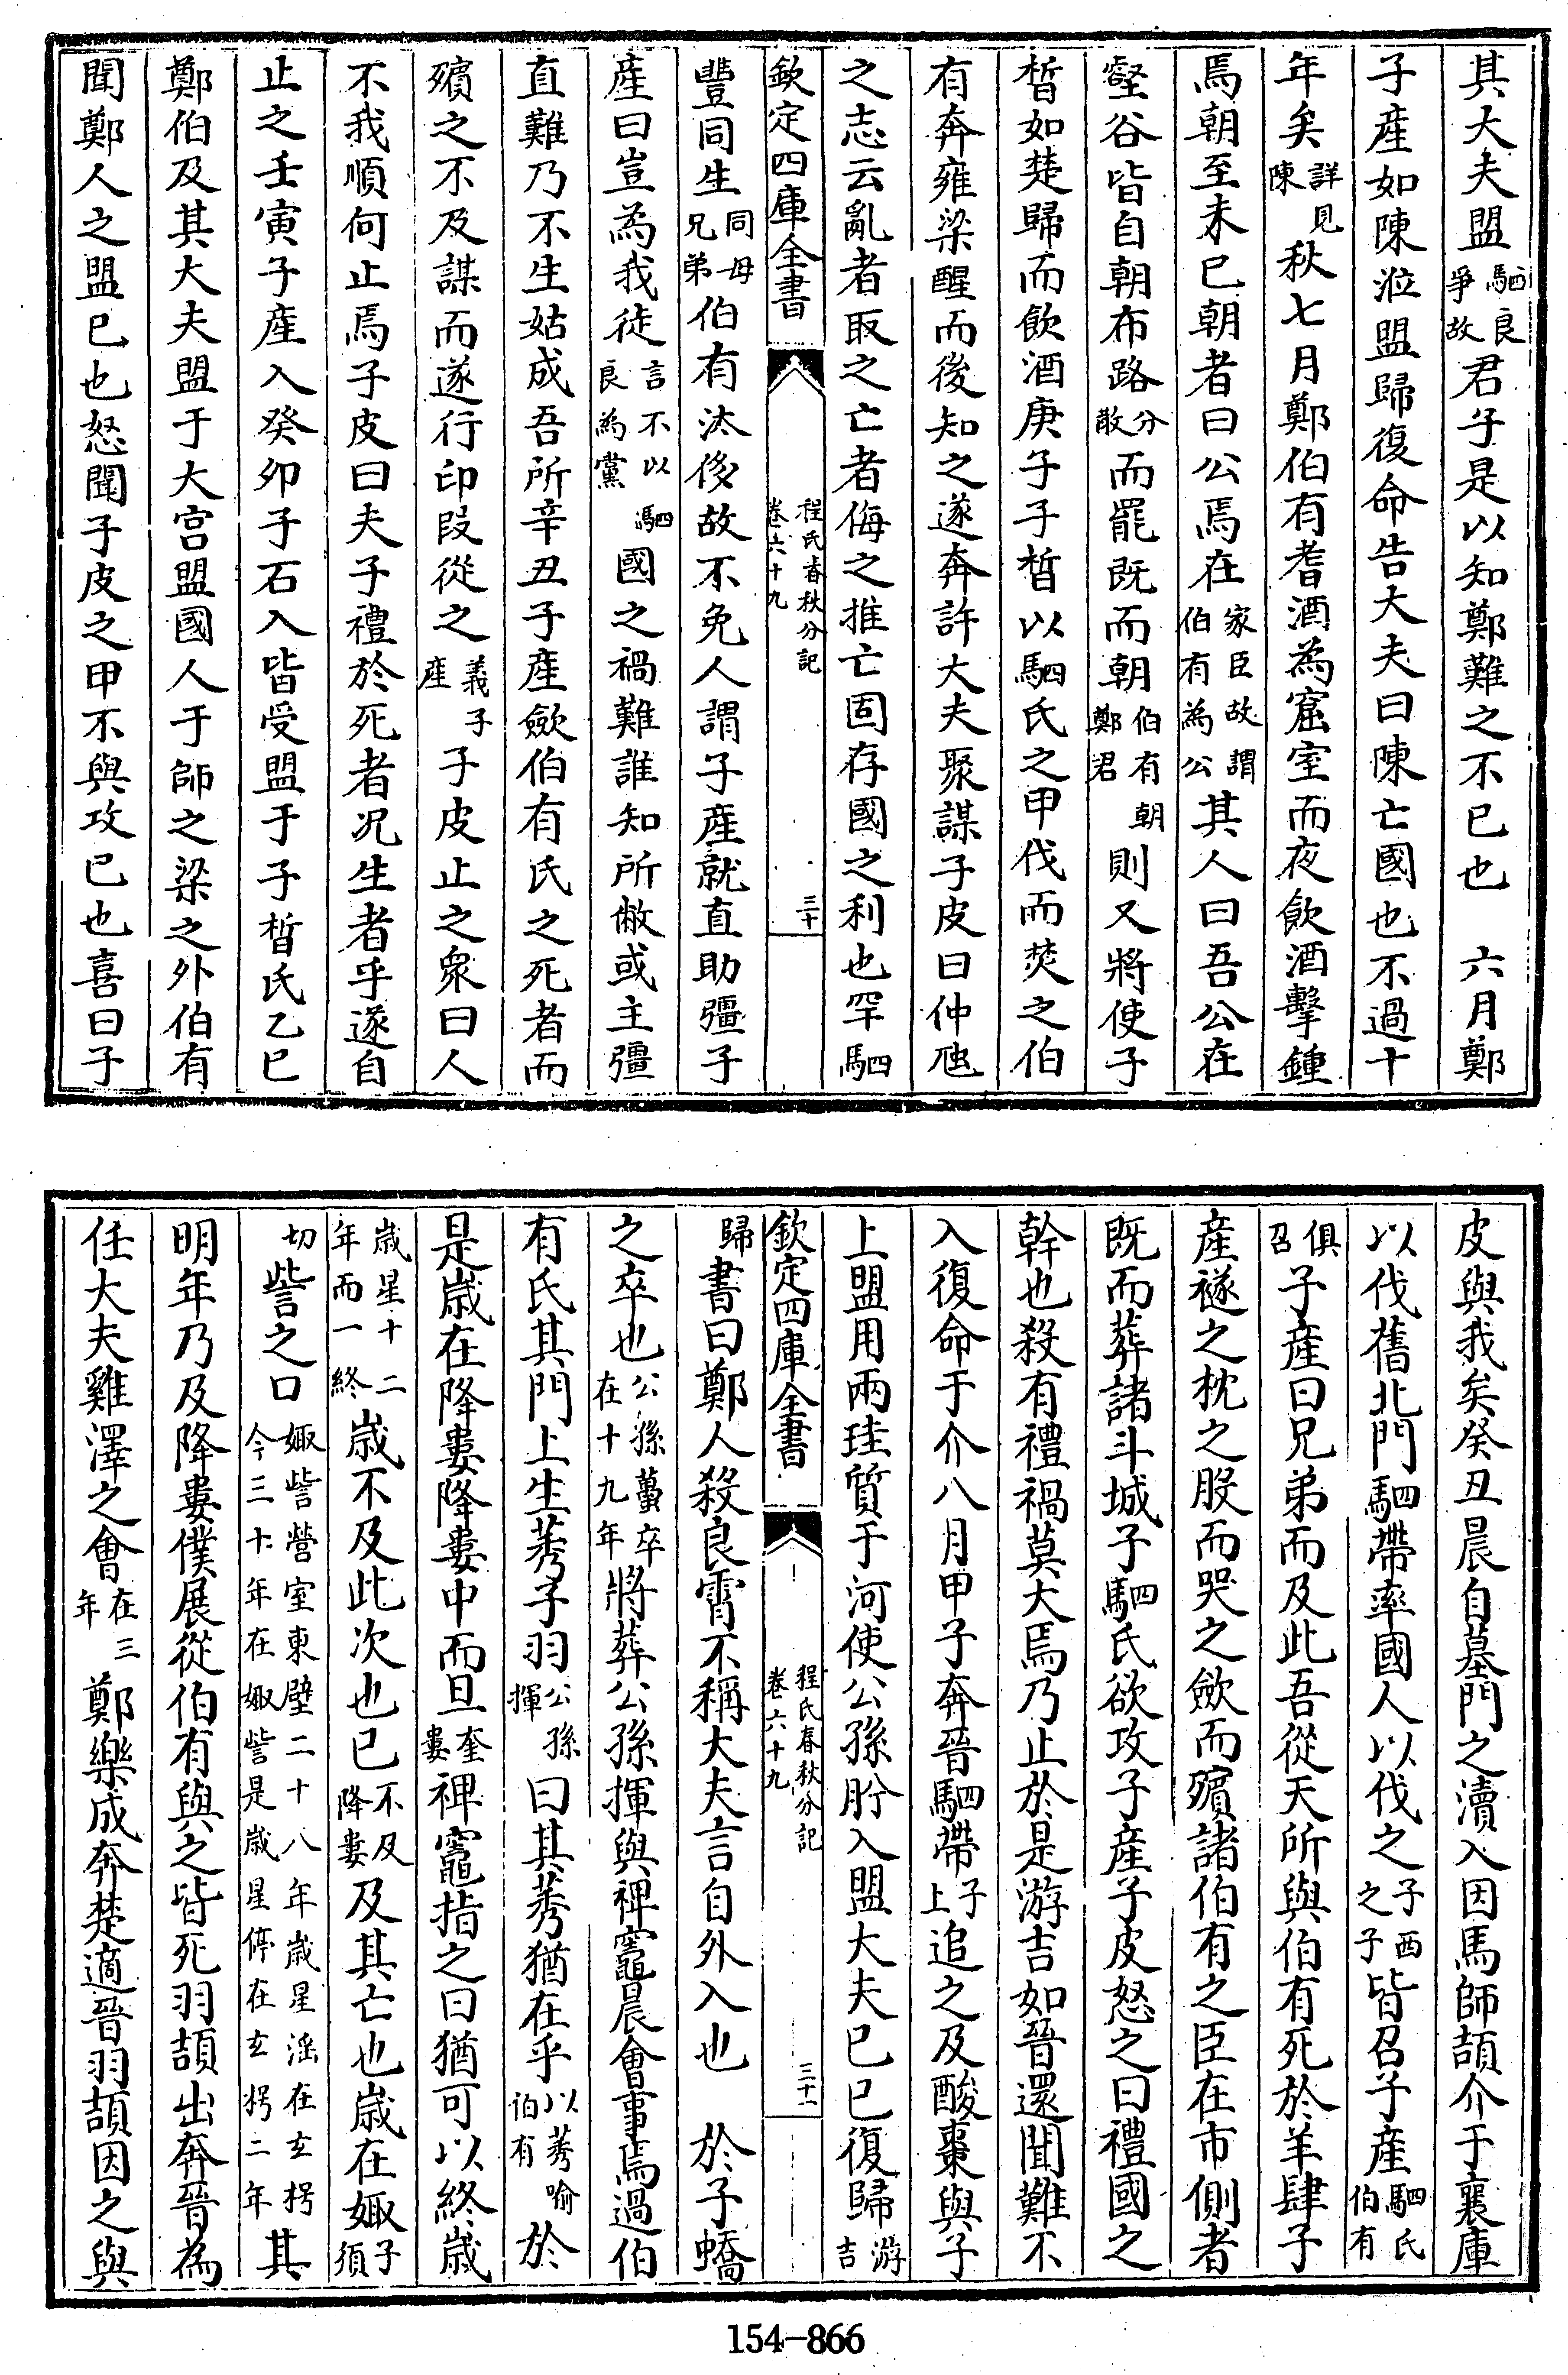 其大夫盟駟良爭故君子是以知鄭難之不已也　六月鄭
子產如陳涖盟歸復命告大夫曰陳亡國也不過十
年矣詳見陳秋七月鄭伯有耆酒為窟室而夜飲酒擊鍾
焉朝至未已朝者曰公焉在家臣故謂伯有為公其人曰吾公在
壑谷皆自朝布路分散而罷既而朝伯有朝鄭君則又將使子
晳如楚歸而飲酒庚子子晳以駟氏之甲伐而焚之伯
有奔雍梁醒而後知之遂奔許大夫聚謀子皮曰仲虺
之志云亂者取之亡者侮之推亡固存國之利也罕駟
欽定四庫全書　程氏春秋分記卷六十九　三十
豐同生同母兄弟伯有汰侈故不免人謂子產就直助彊子
產曰豈為我徒言不以駟良為黨國之禍難誰知所儆或主彊
直難乃不生姑成吾所辛丑子產斂伯有氏之死者而
殯之不及謀而遂行印段從之義子產子皮止之衆曰人
不我順何止焉子皮曰夫子禮於死者况生者乎遂自
止之壬寅子產入癸卯子石入皆受盟于子晳氏乙巳
鄭伯及其大夫盟于大宫盟國人于師之梁之外伯有
聞鄭人之盟已也怒聞子皮之甲不與攻已也喜曰子
皮與我矣癸丑晨自墓門之瀆入因馬師頡介于襄庫
以伐舊北門駟帶率國人以伐之子西之子皆召子產駟氏伯有
俱召子產曰兄弟而及此吾從天所與伯有死於羊肆子
產襚之枕之股而哭之斂而殯諸伯有之臣在市側者
既而葬諸斗城子駟氏欲攻子產子皮怒之曰禮國之
幹也殺有禮禍莫大焉乃止於是游吉如晉還聞難不
入復命于介八月甲子奔晉駟帶子上追之及酸棗與子
上盟用兩珪質于河使公孫肸入盟大夫已巳復歸游吉
欽定四庫全書　程氏春秋分記卷六十九　三十一
歸書曰鄭人殺良霄不稱大夫言自外入也　於子蟜
之卒也公孫蠆卒在十九年將葬公孫揮與裨竈晨會事焉過伯
有氏其門上生莠子羽公孫揮曰其莠猶在乎以莠喻伯有於
是歲在降婁降婁中而旦奎婁裨竈指之曰猶可以終歲
歲星十二年而一終歲不及此次也已不及降婁及其亡也歲在娵子須
切訾之口娵訾營室東壁二十八年歲星滛在玄枵今三十年在娵訾是歲星停在玄枵二年其
明年乃及降婁僕展從伯有與之皆死羽頡出奔晉為
任大夫雞澤之會在三年鄭樂成奔楚適晉羽頡因之與
154-866